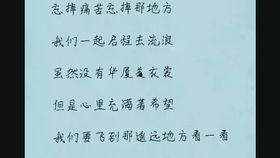 忘掉痛苦忘掉那地方
我们一起启程去流浪
虽然没有华厦美衣裳
但是心里充满著希望
我们要飞到那遥远地方看一看